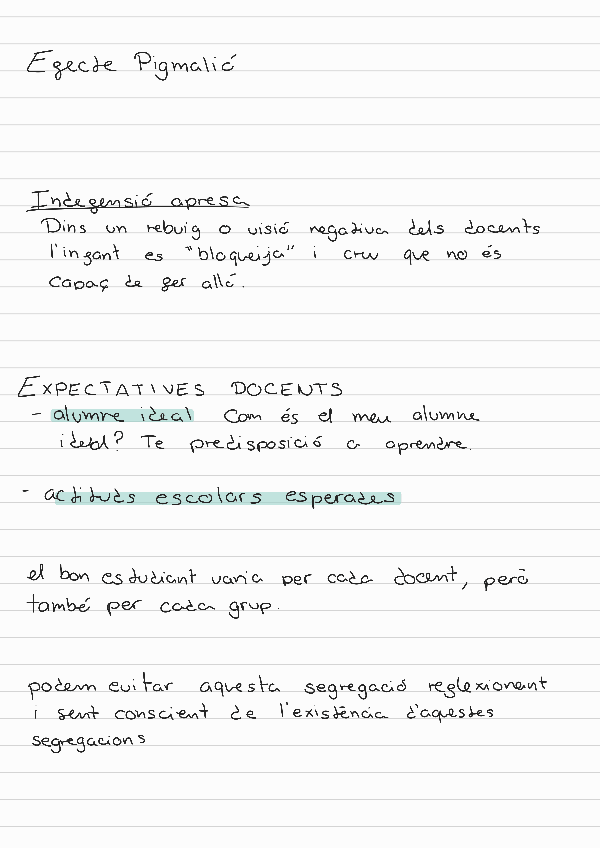 Efecte Pigmalió
Indefensió apresa
Dins un rebuig o visió negativa dels docents
l'infant es "bloqueija" i creu que no és
capaç de fer allò.
EXPECTATIVES DOCENTS
- alumne ideal Com és el meu alumne
ideal? Te predisposició a aprendre.
- actituds escolars esperades
el bon estudiant varia per cada docent, però
també per cada grup.
podem evitar aquesta segregació reflexionant
i sent conscient de l'existència d'aquestes
segregacions